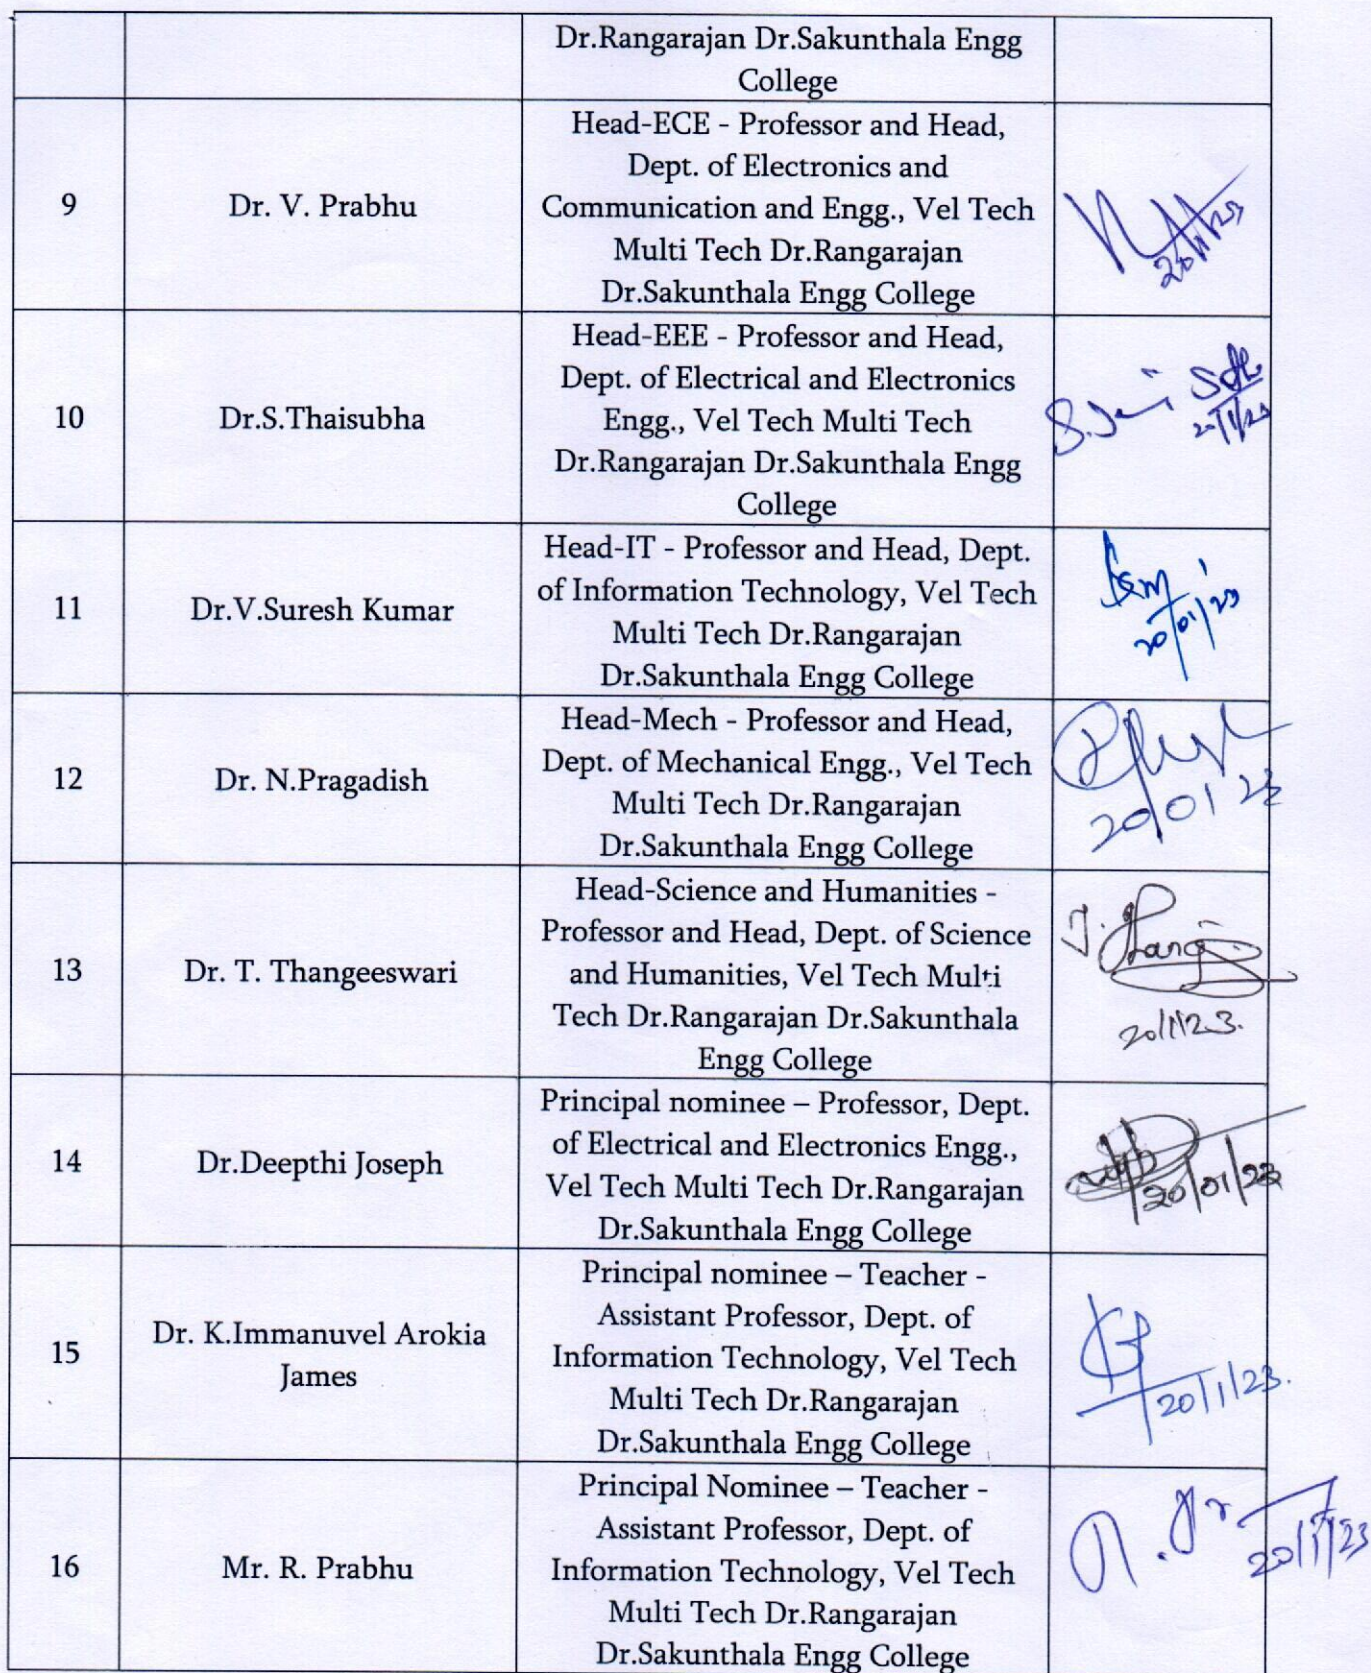 Dr.Rangarajan Dr.Sakunthala Engg
College
9
Dr. V. Prabhu
Head-ECE - Professor and Head,
Dept. of Electronics and
Communication and Engg., Vel Tech
Multi Tech Dr.Rangarajan
Dr.Sakunthala Engg College
20/1/23
10
Dr.S.Thaisubha
Head-EEE - Professor and Head,
Dept. of Electrical and Electronics
Engg., Vel Tech Multi Tech
Dr.Rangarajan Dr.Sakunthala Engg
College
20/1/23
11
Dr.V.Suresh Kumar
Head-IT - Professor and Head, Dept.
of Information Technology, Vel Tech
Multi Tech Dr.Rangarajan
Dr.Sakunthala Engg College
20/01/23
12
Dr. N.Pragadish
Head-Mech - Professor and Head,
Dept. of Mechanical Engg., Vel Tech
Multi Tech Dr.Rangarajan
Dr.Sakunthala Engg College
20/01/23
13
Dr. T. Thangeeswari
Head-Science and Humanities -
Professor and Head, Dept. of Science
and Humanities, Vel Tech Multi
Tech Dr.Rangarajan Dr.Sakunthala
Engg College
20/1/23.
14
Dr.Deepthi Joseph
Principal nominee – Professor, Dept.
of Electrical and Electronics Engg.,
Vel Tech Multi Tech Dr.Rangarajan
Dr.Sakunthala Engg College
20/01/23
15
Dr. K.Immanuvel Arokia
James
Principal nominee – Teacher -
Assistant Professor, Dept. of
Information Technology, Vel Tech
Multi Tech Dr.Rangarajan
Dr.Sakunthala Engg College
20/1/23.
16
Mr. R. Prabhu
Principal Nominee – Teacher -
Assistant Professor, Dept. of
Information Technology, Vel Tech
Multi Tech Dr.Rangarajan
Dr.Sakunthala Engg College
20/1/23